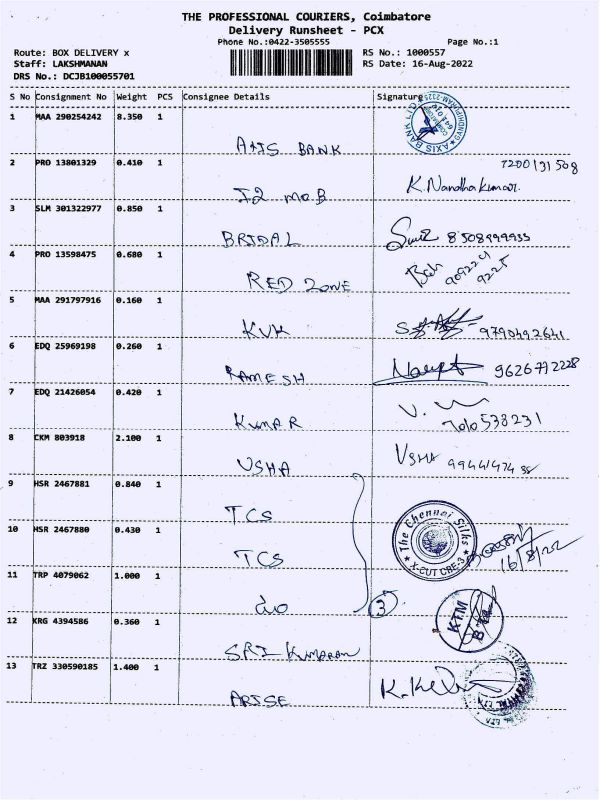 THE PROFESSIONAL COURIERS, Coimbatore
Delivery Runsheet - PCX
Phone No.:0422-3505555 Page No.:1
Route: BOX DELIVERY x RS No.: 1000557
Staff: LAKSHMANAN RS Date: 16-Aug-2022
DRS No.: DCJB100055701
S No Consignment No Weight PCS Consignee Details Signature
1 MAA 290254242 8.350 1
AXIS BANK
2 PRO 13801329 0.410 1
K. Nandhakumar.
3 SLM 301322977 0.850 1
BRIDAL 8508999933
4 PRO 13598475 0.680 1
RED ZONE 909224 9225
5 MAA 291797916 0.160 1
KVK 9790492641
6 EDQ 25969198 0.260 1
RAMESH
7 EDQ 21426054 0.420 1
KUMAR 538231
8 CKM 803918 2.100 1
USHA USHA
9 HSR 2467881 0.840 1
TCS
10 HSR 2467880 0.430 1
TCS The Chennai Silks X-CUT CBE-3 16/8/22
11 TRP 4079062 1.000 1
3
12 KRG 4394586 0.360 1 KTM
SRI KUMARAN
13 TRZ 330590185 1.400 1
ARISE